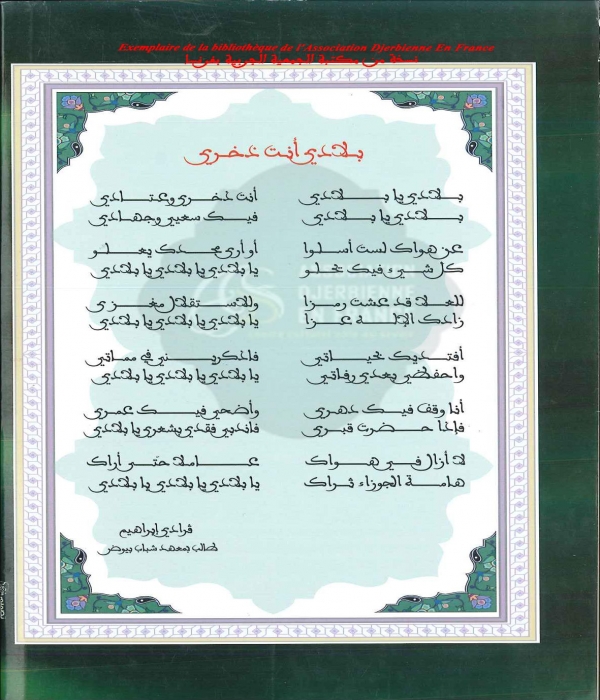 Exemplaire de la bibliothèque de l'Association Djerbienne En France
نسخة من مكتبة الجمعية الجربية بفرنسا
بلادي أنت ذخري
بلادي يا بلادي أنت ذخري وعتادي
بلادي يا بلادي فيك سعيي وجهادي
عن هواك لست أسلوا أو أرى مجدك يعلو
كل شيء فيك يحلو يا بلادي يا بلادي يا بلادي
للعلا قد عشت رمزا وللاستقلال مغزى
زادك الإلاه عزا يا بلادي يا بلادي يا بلادي
أفتديك بحياتي فاذكريني في مماتي
واحفظي بعدي رفاتي يا بلادي يا بلادي يا بلادي
أنا وقف فيك دهري وأضحي فيك عمري
فإذا حضرت قبري فاندبي فقدي بشعري يا بلادي
لا أزال في هواك عاملا حتى أراك
هامة الجوزاء ثراك يا بلادي يا بلادي يا بلادي
DJERBIENNE
EN FRANCE
قرادي إبراهيم
طالب بمعهد شباب بيوض